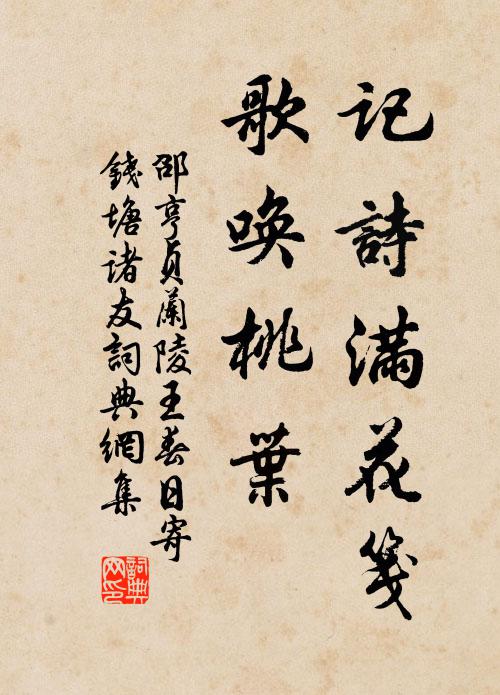 记詩满花笺
歌唤桃葉
邵亨貞蘭陵王春日寄
錢塘诸友詞典網集
詞典网印